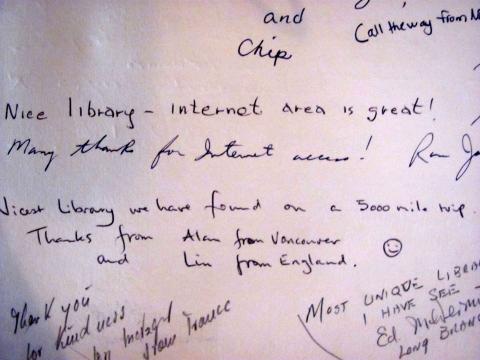 and
Chip
Call the way from
Nice library - internet area is great!
Many thanks for Internet access!
Nicest Library we have found on a 5000 mile trip.
Thanks from Alan from Vancouver
and Lin from England.
Thank you
for kindness
from France
MOST UNIQUE
I HAVE SEE
Ed
LONG